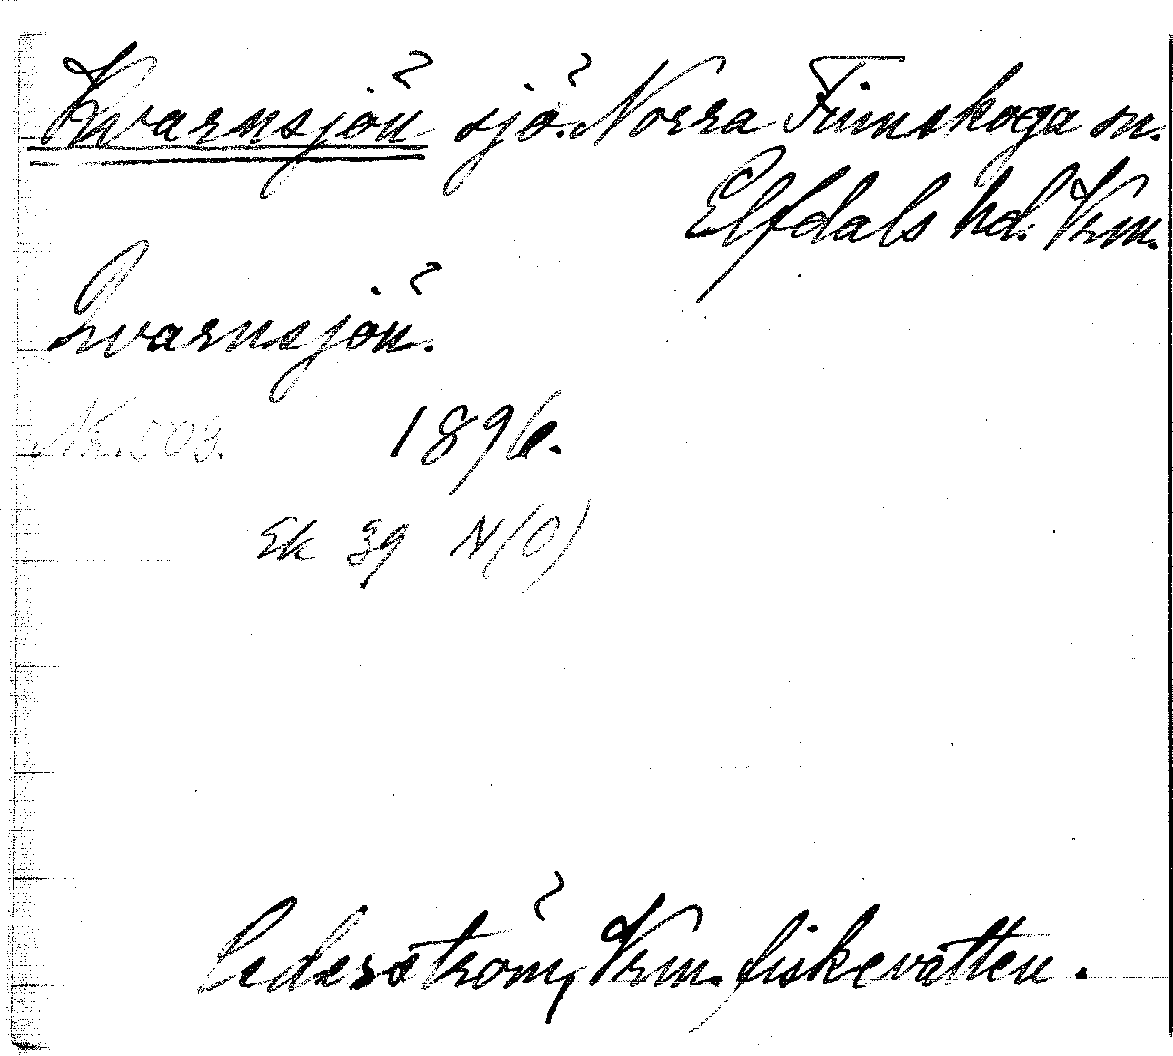 Kvarnsjön sjö. Norra Finnskoga sn.
Elfdals hd. Vrm.
Qvarnsjön.
Nr. 503. 1896.
Ek 39 N(O)
Cederström, Vrm. fiskevatten.